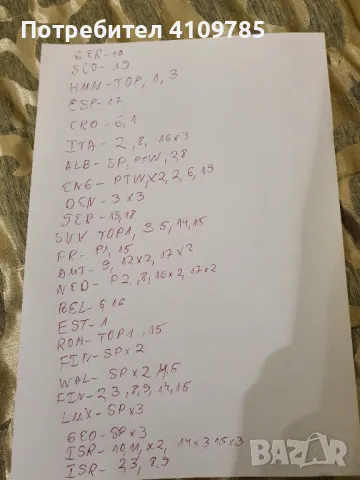 Потребител 4109785
GER-10
SLO-19
HUN-TOP, 1, 3
ESP-17
CRO-6,1
ITA-2,8, 16x3
ALB-SP, PTW, 28
ENG-PTW,x2,2,6,19
DEN-3x3
SER-19,18
SVK-TOP1, 9 5, 14,15
FR-P1,15
AUT-9, 12x2, 17x2
NED-P2,8,10x2,17x2
BEL-6 16
EST-1
ROM-TOP1,15
FIN-SPx2
WAL-SPx2,4,5
FIN-23,8,9,14,15
LUX-SPx3
GEO-SPx3
ISR-10,11,x2, 14x3,15x3
ISR-23,8,9
BAZAR